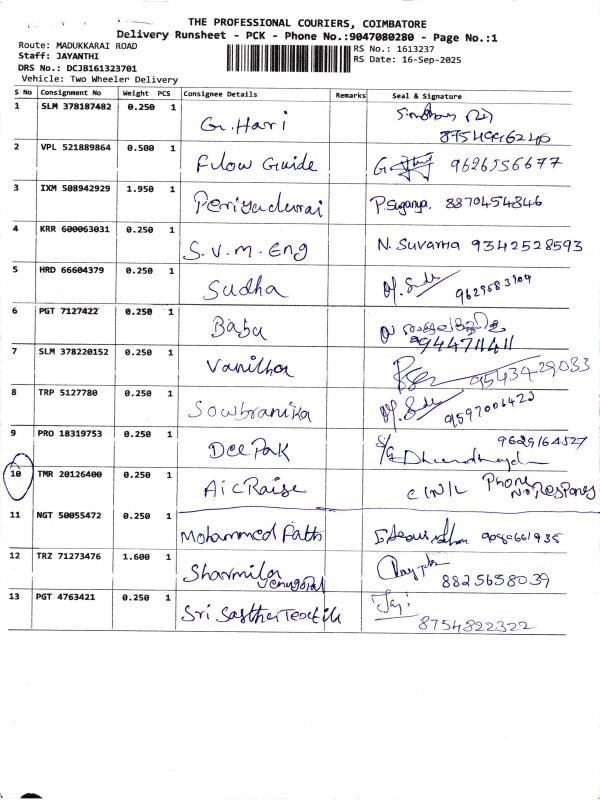 THE PROFESSIONAL COURIERS, COIMBATORE
Delivery Runsheet - PCK - Phone No.:9047080280 - Page No.:1
Route: MADUKKARAI ROAD
RS No.: 1613237
Staff: JAYANTHI
RS Date: 16-Sep-2025
DRS No.: DCJB161323701
Vehicle: Two Wheeler Delivery
S No Consignment No Weight PCS Consignee Details Remarks Seal & Signature
1 SLM 378187482 0.250 1 G. Hari
2 VPL 521889864 0.500 1 Flow Guide 9626556677
3 IXM 508942929 1.950 1 Periyadurai P.Suganya. 8870454846
4 KRR 600063031 0.250 1 S.V.M. Eng N. Suvarna 9342528593
5 HRD 66604379 0.250 1 Sudha 9629583904
6 PGT 7127422 0.250 1 Babu
7 SLM 378220152 0.250 1 Vanitha 9543429033
8 TRP 5127780 0.250 1 Sowbranika 9597006422
9 PRO 18319753 0.250 1 Deepak 9629164527
10 TMR 20126400 0.250 1 AicRaise C/N/L Phone No. Respons
11 NGT 50055472 0.250 1 Mohammed Path
12 TRZ 71273476 1.600 1 Sharmila Venugopal 8825658039
13 PGT 4763421 0.250 1 Sri Sasthe Textile 8754822322